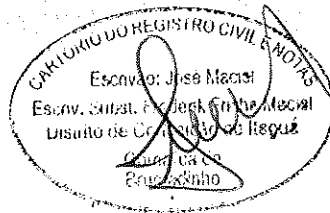 CARTÓRIO DO REGISTRO CIVIL E NOTAS
Escrivão: José Maciel
Escrv. Subst. Maciel
Distrito de Itaguá
Brumadinho